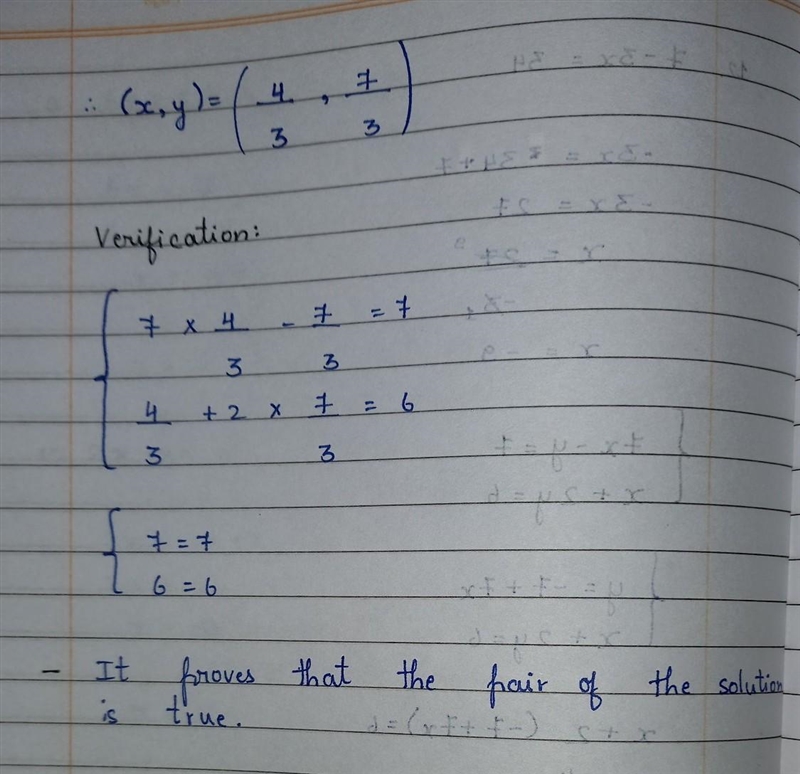 ∴ (x, y) = (4/3, 7/3)
Verification:
{ 7 × 4/3 - 7/3 = 7
4/3 + 2 × 7/3 = 6
{ 7 = 7
6 = 6
- It proves that the pair of the solution
is true.